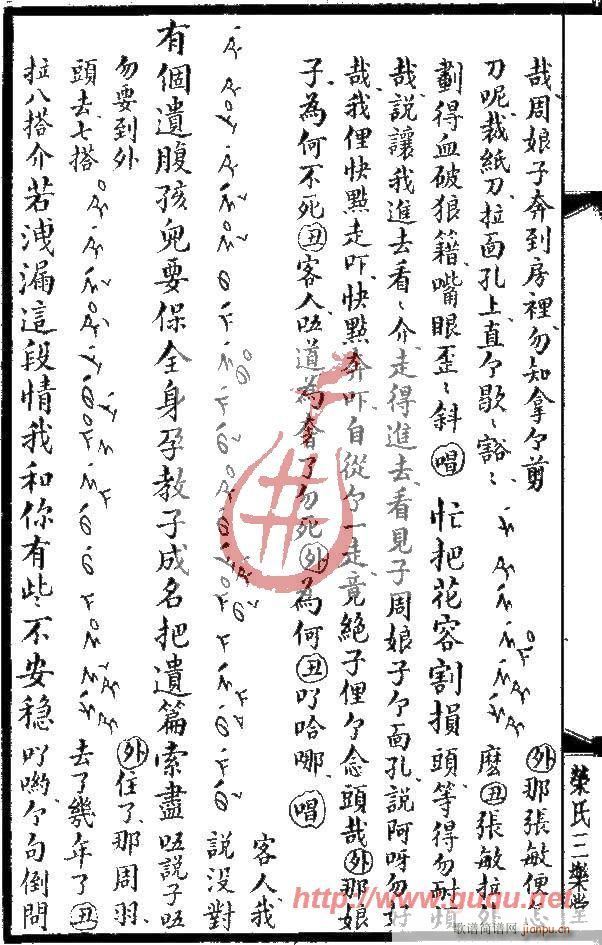 哉周娘子奔到房裡勿知拿个剪 外那張敏便怎
刀呢裁紙刀拉面孔上直个歇〻豁〻 麽丑張敏拉外
劃得血破狼籍嘴眼歪〻斜唱忙把花容割損頭等得勿耐煩
哉說讓我進去看〻介走得進去看見子周娘子个面孔說阿呀勿好
哉我俚快點走吓快點奔吓自從个一走竟絕子俚个念頭哉外那娘
子為何不死丑客人唔道為奢了勿死外為何丑叮哈哪唱
客人我
說沒對
有個遺腹孩兒要保全身孕教子成名把遺篇索盡唔說子唔
勿要到外 外住了那周羽
頭去七搭 去了幾年了丑
拉八搭介若洩漏這段情我和你有些不安穩叮喲个句倒問
榮氏三樂堂
http://www.guqu.net
歌谱简谱网
jianpu.cn